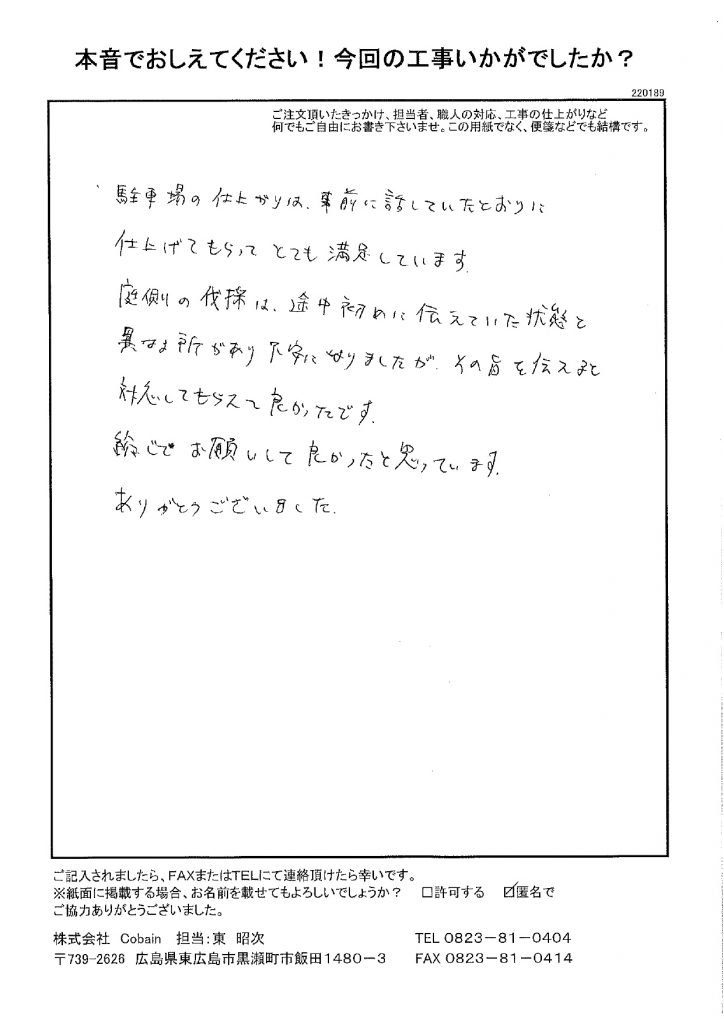 本音でおしえてください！今回の工事いかがでしたか？
220189
ご注文頂いたきっかけ、担当者、職人の対応、工事の仕上がりなど
何でもご自由にお書き下さいませ。この用紙でなく、便箋などでも結構です。
駐車場の仕上がりは、事前に話していたとおりに
仕上げてもらってとても満足しています。
庭側の伐採は、途中初めに伝えていた状態と
異なる所があり不安になりましたが、その旨を伝えると
対応してもらえて良かったです。
総じてお願いして良かったと思っています。
ありがとうございました。
ご記入されましたら、FAXまたはTELにて連絡頂けたら幸いです。
※紙面に掲載する場合、お名前を載せてもよろしいでしょうか？　□許可する　☑匿名で
ご協力ありがとうございました。
株式会社　Cobain　担当：東　昭次　TEL 0823－81－0404
〒739-2626　広島県東広島市黒瀬町市飯田1480－3　FAX 0823－81－0414